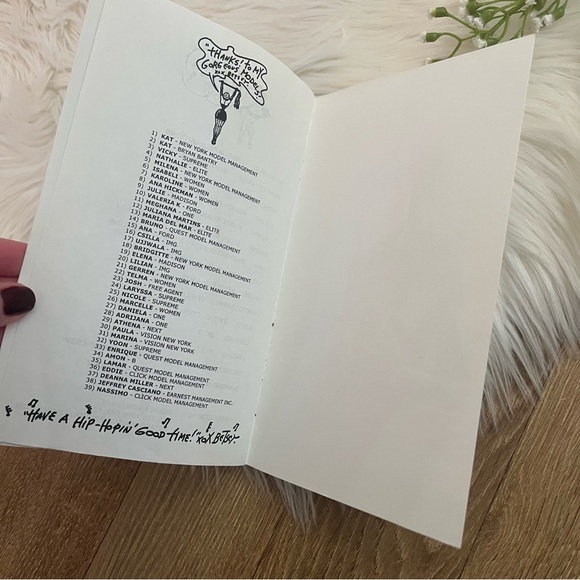 "THANKS! TO MY
GORGEOUS MODELS!
XOX BETSEY
1) KAT - NEW YORK MODEL MANAGEMENT
2) KAT - BRYAN BANTRY
3) VICKY - SUPREME
4) NATHALIE - ELITE
5) MILENA - NEW YORK MODEL MANAGEMENT
6) ISABELI - WOMEN
7) KAROLINE - WOMEN
8) ANA HICKMAN - WOMEN
9) JULIE - MADISON
10) VALERIA K - FORD
11) MEGHANA - ONE
12) JULIANA MARTINS - ELITE
13) MARIA DEL MAR - ELITE
14) BRUNO - QUEST MODEL MANAGEMENT
15) ANA - FORD
16) CSILLA - IMG
17) UJJWALA - IMG
18) BRIDGITTE - NEW YORK MODEL MANAGEMENT
19) ELENA - MADISON
20) LILIAN - IMG
21) GERREN - NEW YORK MODEL MANAGEMENT
22) TELMA - WOMEN
23) JOSH - FREE AGENT
24) LARYSSA - SUPREME
25) NICOLE - SUPREME
26) MARCELLE - WOMEN
27) DANIELA - ONE
28) ADRIJANA - ONE
29) ATHENA - NEXT
30) PAULA - VISION NEW YORK
31) MARINA - VISION NEW YORK
32) YOON - SUPREME
33) ENRIQUE - QUEST MODEL MANAGEMENT
34) AMON - B
35) LAMAR - QUEST MODEL MANAGEMENT
36) EDDIE - CLICK MODEL MANAGEMENT
37) DEANNA MILLER - NEXT
38) JEFFREY CASCIANO - EARNEST MANAGEMENT INC.
39) NASSIMO - CLICK MODEL MANAGEMENT
"HAVE A HIP-HOPIN' GOOD TIME!" XOX BETSEY